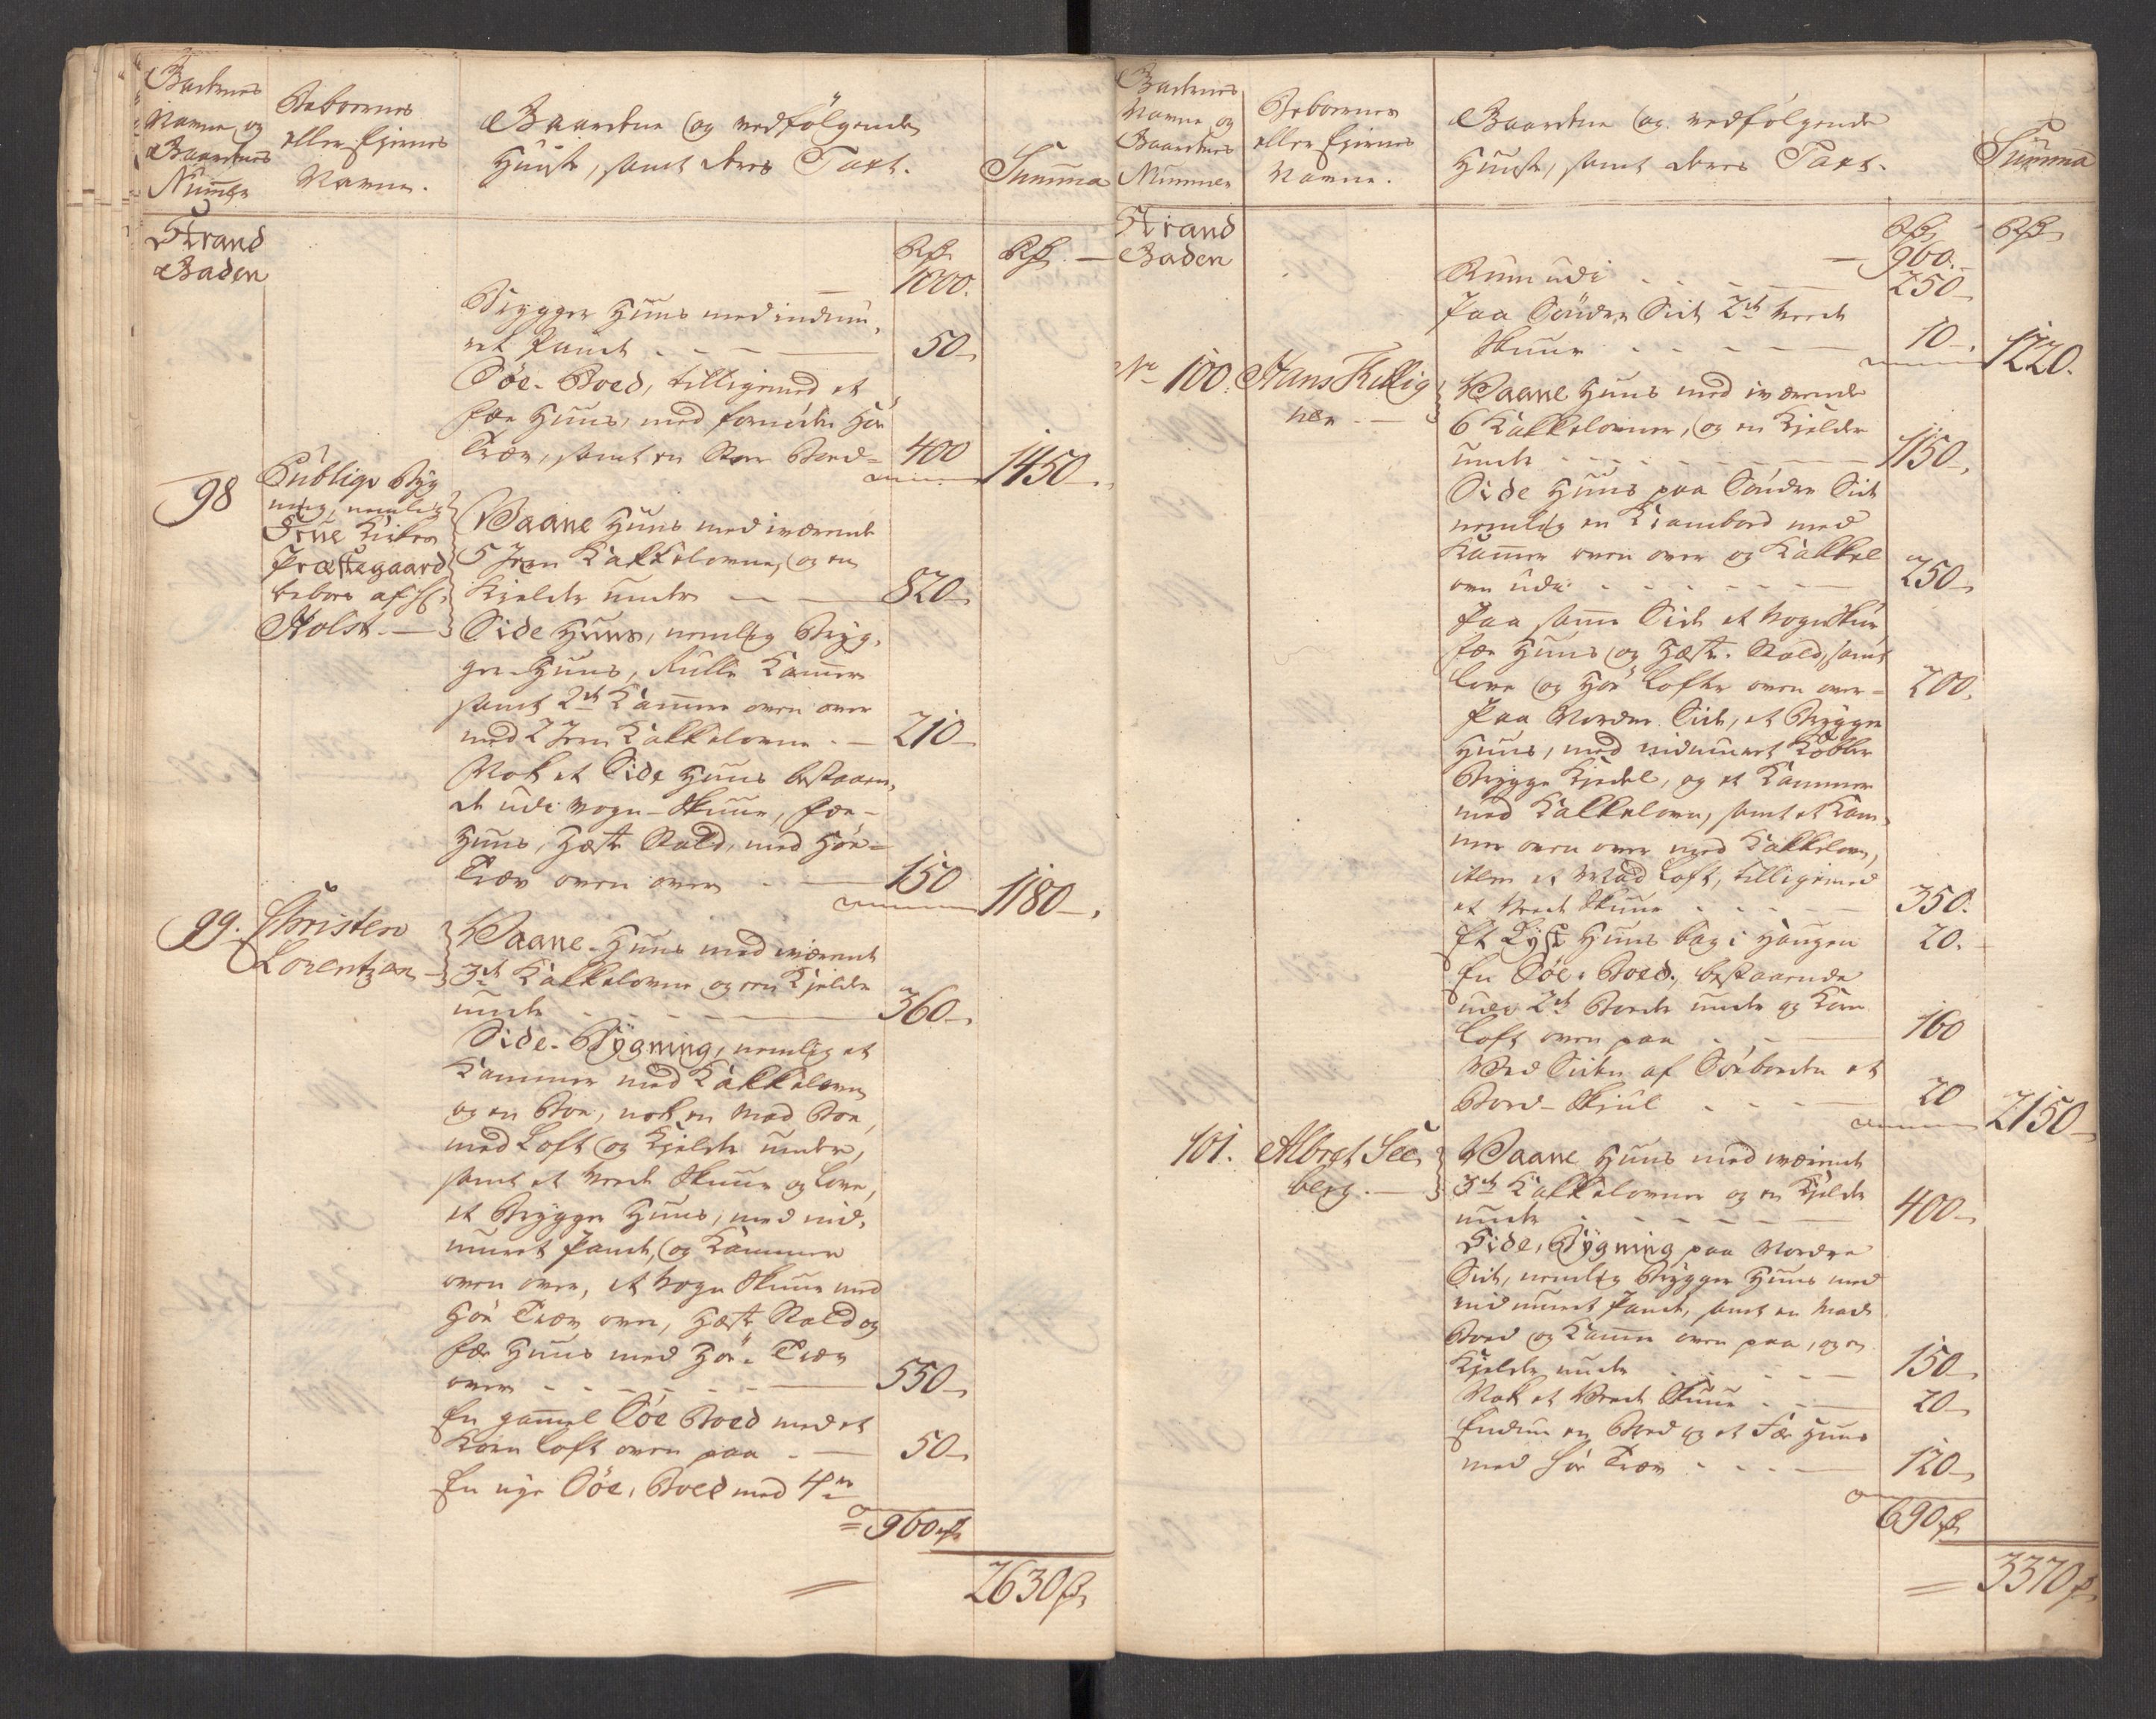 Gadernes
Navne, og
Gaardenes
Numer
Beboernes
eller Ejernes
Navne.
Gaardene og vedfölgende
Huuse, samt deres Taxt.
Summa
Strand
Gaden
Rdr
Rdr
1000.
Brygger Huus med indmu-
ret Pande 50
Söe-Boed, tilligemed et
Fæe Huus, med fornöden Höe
Træv, samt en Boed 400
1450
98
Publiqve Byg
ning, nemlig
Frue Kirkes
Præstegaard
beboes af Hr.
Holst.
Vaane Huus med iværende
5 Jern Kakkelovne, og en
Kjelder under 820
Side Huus, nemlig Bryg-
ger-Huus, Rulle Kammer
samt 2de Kammer oven over
med 2 Jern Kakkelovne 210
Nok et Side Huus bestaaen-
de udi Vogn-Skuur, Fæe-
Huus, Hæste Stald, med Höe-
Træv oven over 150
1180
99.
Christen
Lorentzen
Vaane-Huus med iværende
3de Kakkelovne og en Kjelder
under 360
Side-Bygning, nemlig et
Kammer med Kakkelovn
og en Boe, nok en Mad Boe,
med Loft og Kjelder under,
samt et Veede Skuur og Love,
et Brygger Huus, med ind-
muret Pande, og Kammer
oven over, et Vogn Skuur med
Höe Træv over, Hæste Stald og
Fæe Huus med Höe-Træv
over 550
En gammel Söe Boed med et
Korn Loft oven paa 50
En nye Söe-Boed med 4re
960 rdr
2630 rdr
Gadernes
Navne og
Gaardenes
Nummer
Beboernes
eller Ejernes
Navne.
Gaardene og vedfölgende
Huuse, samt deres Taxt.
Summa
Strand
Gaden
Rdr
Rdr
960.
Rum udi 250
Paa Söndre Side 2de Veede
Skuur 10
1220.
No 100.
Hans Fellig
ner
Vaane Huus med iværende
6 Kakkelovner, og en Kjelder
under 1150
Side Huus paa Söndre Side
nemlig en Kramboed med
Kammer oven over og Kakkel
ovn udi 250
Paa samme Side et Vogn Skur,
Fæe Huus og Hæste-Stald, samt
Love og Höe Lofte oven over 200.
Paa Nordre Side, et Brygger
Huus, med indmuret Kobber
Brygge Kjedel, og et Kammer
med Kakkelovn, samt et Kam-
mer oven over med Kakkelovn,
item et Mad Loft, tilligemed
et Veede Skuur 350.
Et Lyst Huus bag i Haugen 20.
En Söe-Boed, bestaaende
udi 2de Boede under og Korn
Loft oven paa 160
Ved Siden af Söeboeden et
Bord-Skiul 20
2150
101.
Albret See
berg.
Vaane Huus med iværende
3de Kakkelovner og en Kjelder
under 400
Side, Bygning paa Nordre
Side, nemlig Brygger Huus med
indmuret Pande, samt en Mad
Boed og Kammer oven paa, og en
Kjelder under 150
Nok et Veede Skuur 20
Endnu en Boed og et Fæe Huus
med Höe Træv 120
690 rdr
3370 rdr